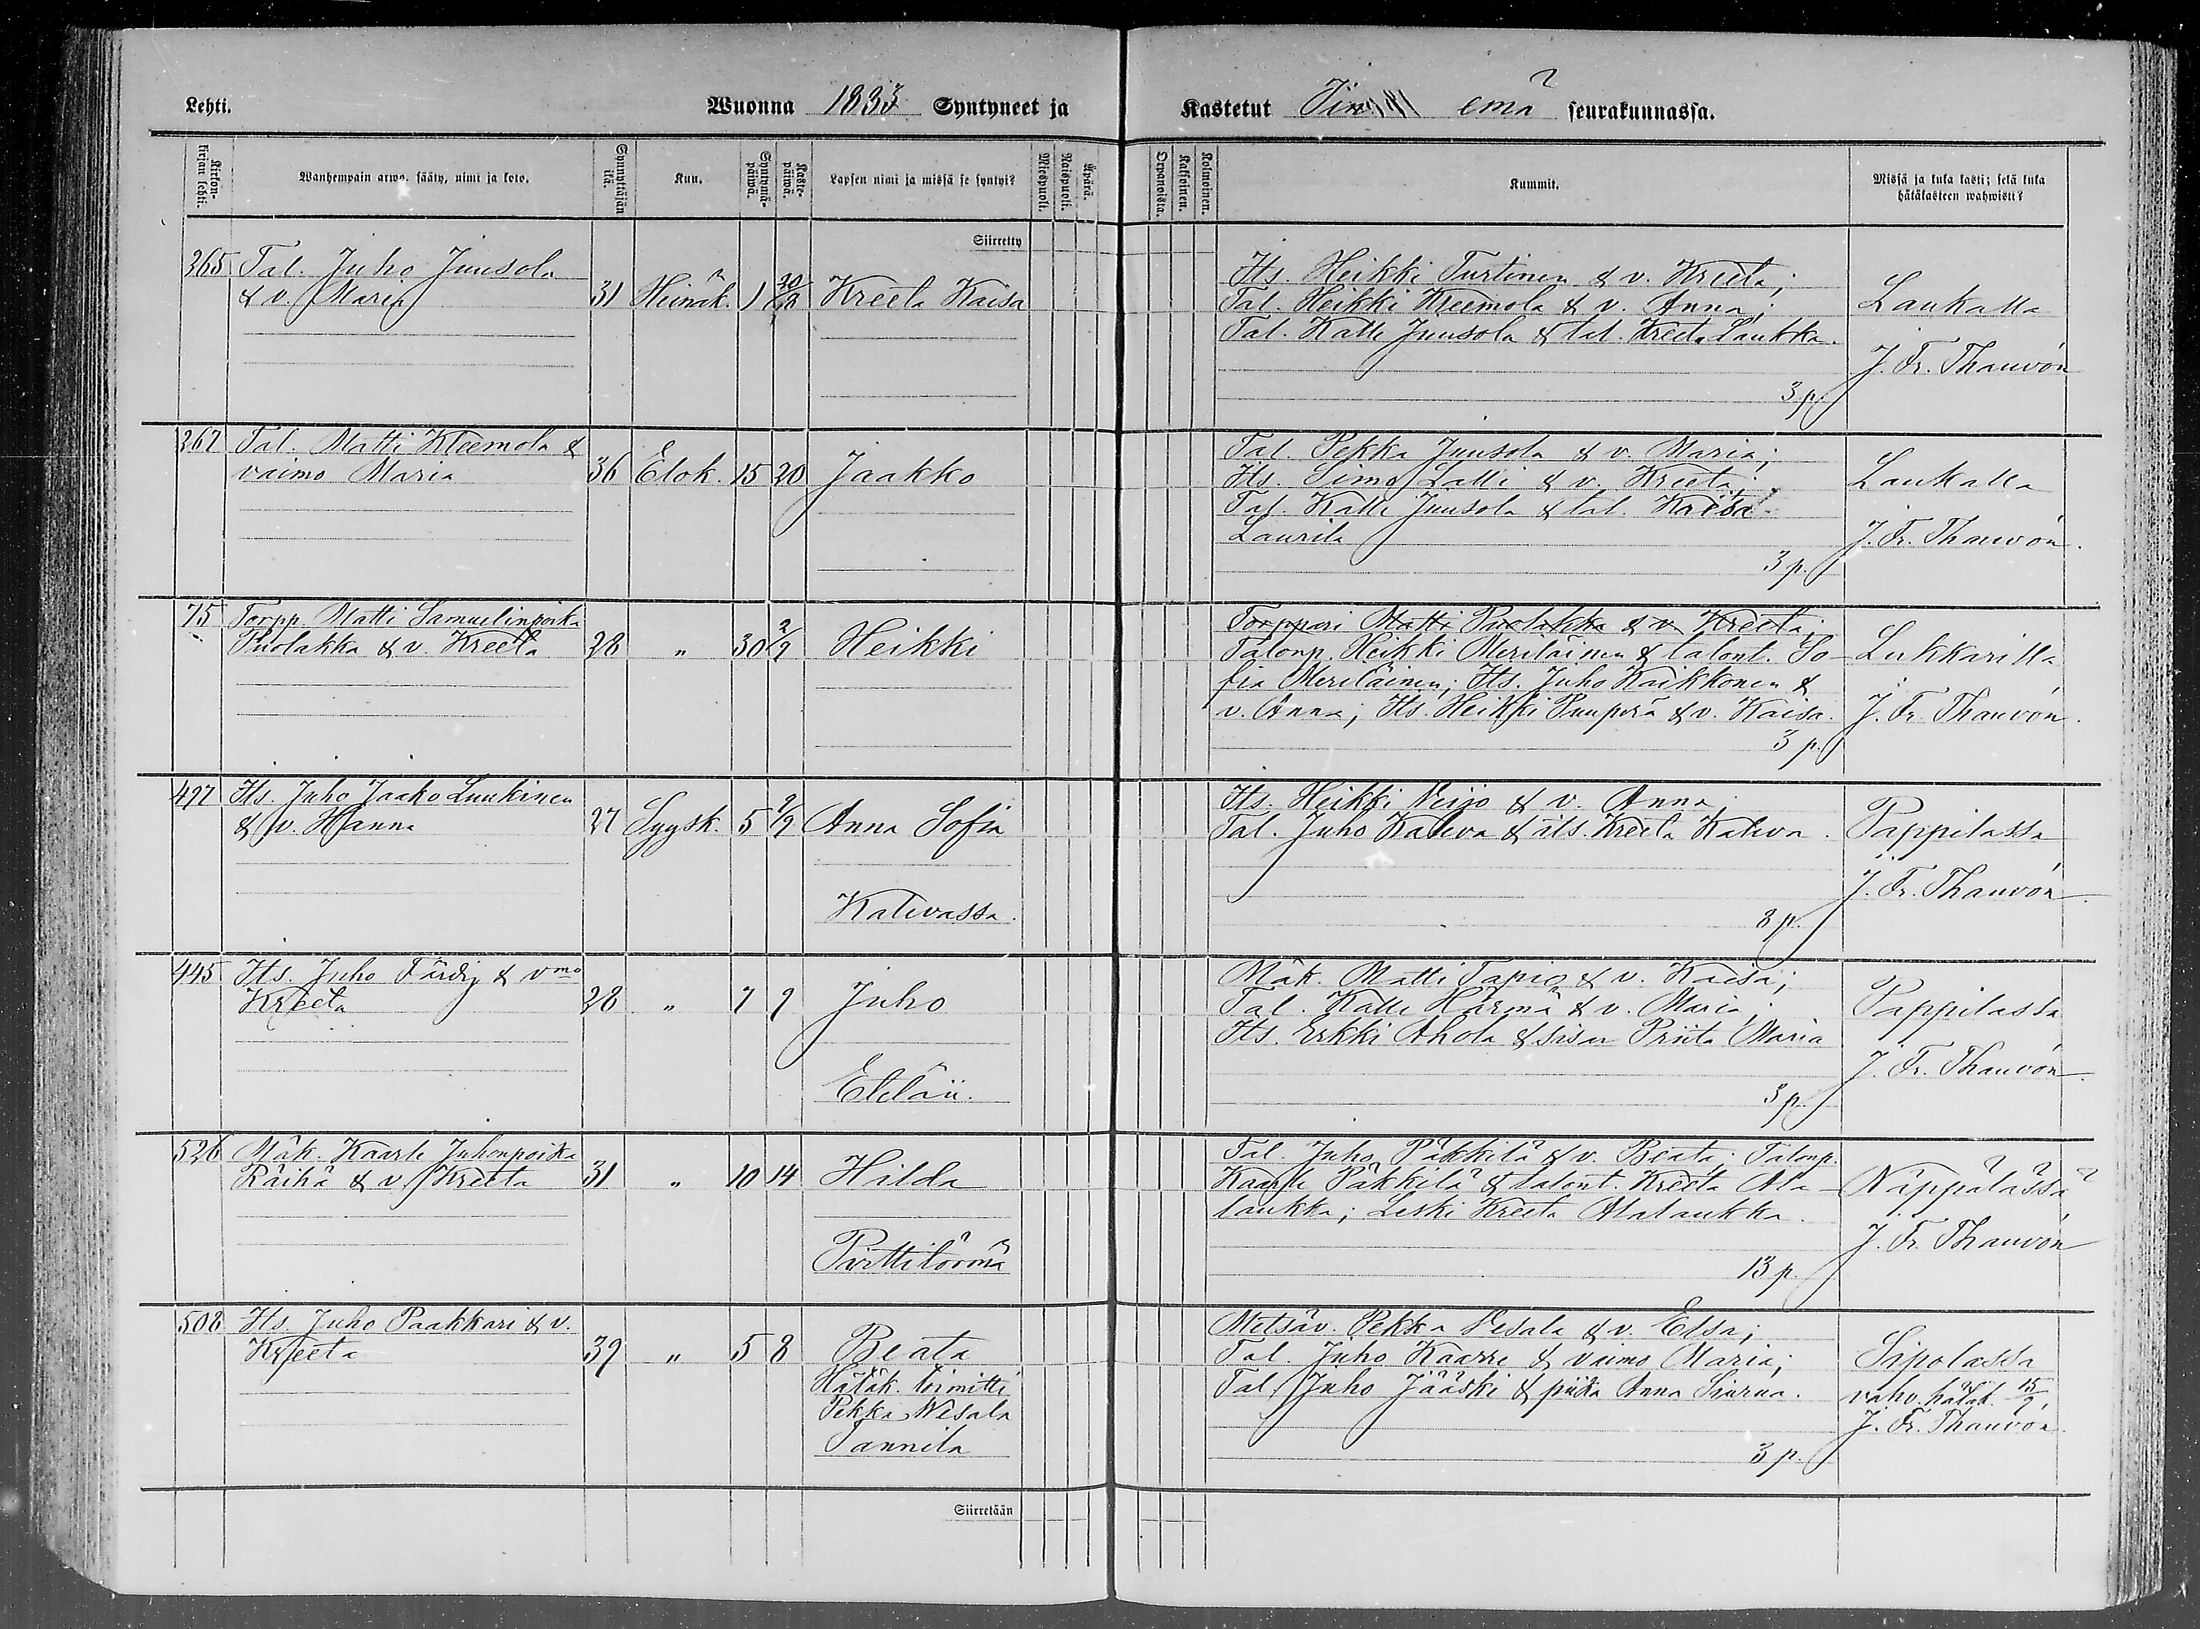 Lehti.
Wuonna 1883 Syntyneet ja Kastetut Iin emä seurakunnassa.
Kirkon-kirjan lehti.
Wanhempain arwo, sääty, nimi ja koto.
Synnyttäjän ikä.
Kuu.
Syntymä-päiwä.
Kaste-päiwä.
Lapsen nimi ja missä se syntyi?
Miespuoli.
Naispuoli.
Äpärä.
Orpanoista.
Kaksoinen.
Kolmoinen.
Kummit.
Missä ja kuka kasti; sekä kuka
hätäkasteen wahwisti?
Siirretty
365 Tal. Juho Juusola
& v. Maria 31 Heinäk. 1 Kreeta Kaisa
Its. Heikki Turtinen & v. Kreeta;
Tal. Heikki Kleemola & v. Anna;
Tal. Kalle Juusola & tal. Kreeta Laukka.
3 p.
Laukalla
J. Fr. Thauvón
367 Tal. Matti Kleemola &
vaimo Maria 36 Elok. 15 20 Jaakko
Tal. Pekka Juusola & v. Maria;
Its. Simo Latti & v. Kreeta;
Tal. Kalle Juusola & tal. Kaisa
Laurila
3 p.
Laukalla
J. Fr. Thauvón.
75 Torpp. Matti Samuelinpoika
Puolakka & v. Kreeta 28 " 30 2/9 Heikki
Torppari Matti Puolakka & v. Kreeta;
Talonp. Heikki Meriläinen & talont. So-
fia Meriläinen; Its. Juho Kaikkonen &
v. Anna; Its. Heikki Puuperä & v. Kaisa.
3 p.
Liikkarilla
J. Fr. Thauvón.
477 Its. Juho Jaako Luukinen
& v. Hanna 27 Syysk. 5 9/9 Anna Sofia
Kalevassa.
Its. Heikki Veijo & v. Anna;
Tal. Juho Kaleva & its. Kreeta Kaleva.
3 p.
Pappilassa
J. Fr. Thauvón.
445 Its. Juho Färdig & vmo
Kreeta 28 " 7 9 Juho
Eteläii.
Mäk. Matti Tapio & v. Kaisa;
Tal. Kalle Härmä & v. Maria;
Its. Erkki Ahola & sisar Priita Maria
3 p.
Pappilassa
J. Fr. Thauvón.
526 Mäk. Kaarle Juhonpoika
Räihä & v. Kreeta 31 " 10 14 Hilda
Pirttitörmä
Tal. Juho Päkkilä & v. Beata; Talonp.
Kaarle Päkkilä & talont. Kreeta Ala-
laukka; Leski Kreeta Alalaukka.
13 p.
Näppälässä
J. Fr. Thauvón
508 Its. Juho Paakkari & v.
Kreeta 39 " 5 8 Beata
Hätäk. toimitti
Pekka Wesala
Tannila
Metsäv. Pekka Vesala & v. Elsa;
Tal. Juho Kaarre & vaimo Maria;
Tal. Juho Jääski & piika Anna Siurua.
3 p.
Sipolassa
vahv. hätäk. 15/9,
J. Fr. Thauvón.
Siirretään